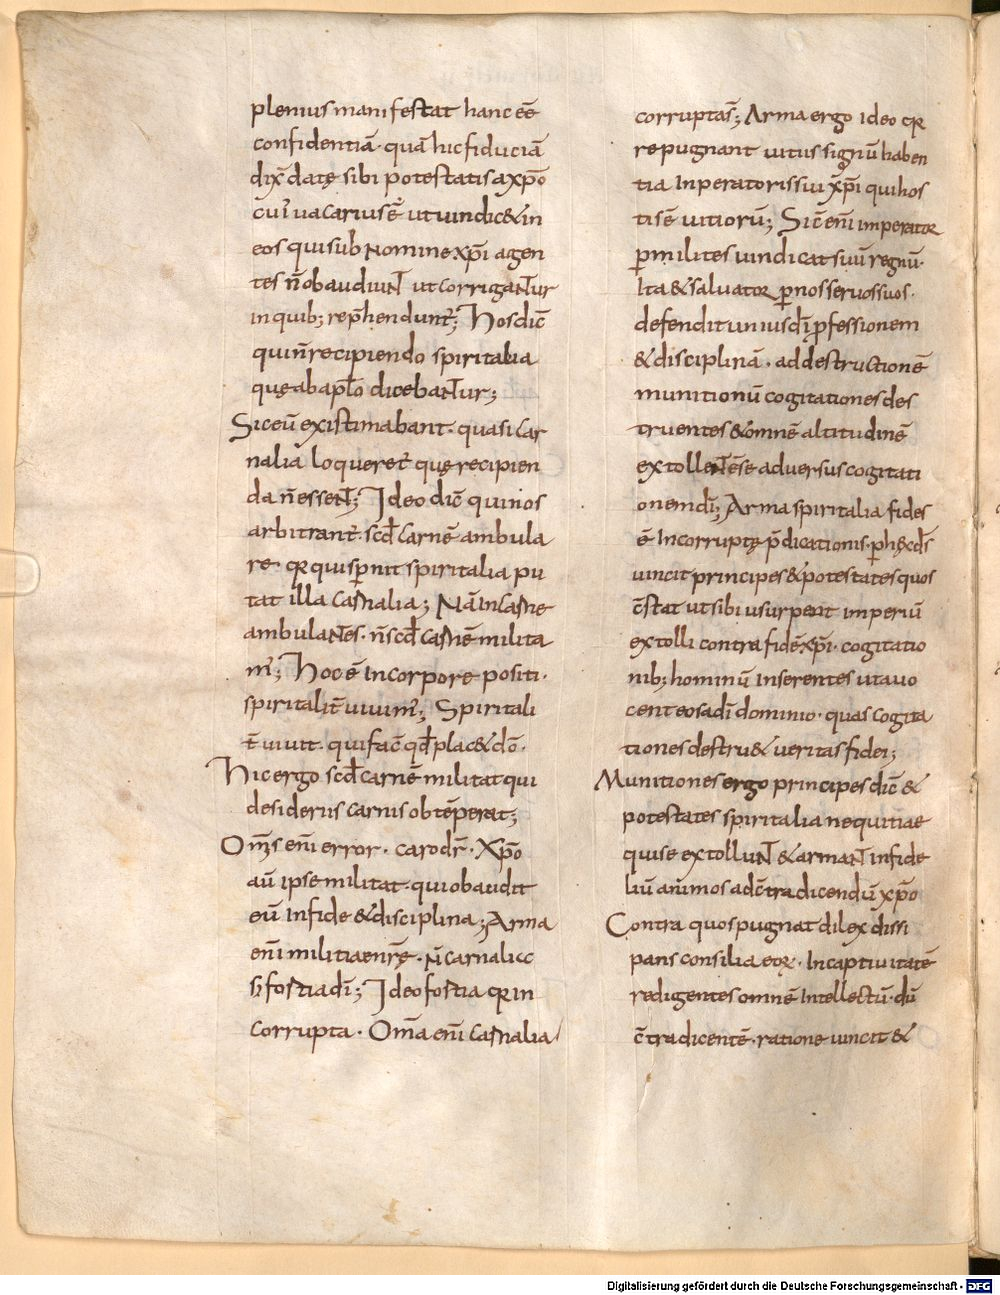 plenius manifestat hanc eē
confidentiā· quā hic fiduciā
dix̄ datę sibi potestatis a xp̄o
cuı᾽ uacarius ē ut uindic& in
eos qui sub nomine xp̄i agen
tes n̄ obaudiunt̄ ut corrigantur
in quib; rep̄hendunt᾽; Hos dic̄
qui n̄ recipiendo spiritalia
quę ab apl̄o dicebantur;
Sic eū existimabant· quasi car
nalia loqueret᾽ quę recipien
da n̄ essent; Ideo dic̄ qui nos
arbitrant᾽· scd̄ carnē ambula
re· qꝛ qui spernit spiritalia pu
tat illa carnalia; Nā in carne
ambulantes· n̄ scd̄ carnē milita
m᾽; Hoc ē in corpore positi·
spiritalit̄ uiuim᾽; Spiritali
t̄ uiuit· qui fac̄ qd̄ plac& dō·
Hic ergo scd̄ carnē militat qui
desideriis carnis obtēperat;
Om̄s eni error· caro dr̄· Xp̄o
aū ipse militat· qui obaudit
eū in fide & disciplina; Arma
eni militiae nr̄ę· n̄ carnalia
s; fortia dī; Ideo fortia qꝛ in
corrupta· Om̄a eni carnalia
corruptas̄; Arma ergo ideo qꝛ
repugnant uitiis signū haben
tia inperatoris sui xp̄i qui hos
tis ē uitiorū; Sic eni imperator
ꝑ milites uindicat suū regnū·
Ita & saluator ꝑ nos seruos suos·
defendit unius dī ꝓfessionem
& disciplinā· ad destructionē
munitionū cogitationes des
truentes & omnē altitudinē
extollentē se aduersus cogitati
onem dī; Arma spiritalia fides
ē incorruptę p̄dicationis· ꝑ hęc ds̄
uincit principes & potestates quos
c̄stat ut sibi usurpent imperiū
extolli contra fidē xp̄i· cogitatio
nib; hominū inserentes ut auo
cent eos a dī dominio· quas cogita
tiones destru& ueritas fidei;
Munitiones ergo principes dic̄ &
potestates spiritalia nequitiae
qui se extollunt & armant infide
liū animos ad c̄tradicendū xp̄o
Contra quos pugnat dilex dissi
pans consilia eoꝝ· In captiuitatē
redigentes omnē intellectū· dū
c̄tradicentē· ratione uincit &
Digitalisierung gefördert durch die Deutsche Forschungsgemeinschaft - DFG